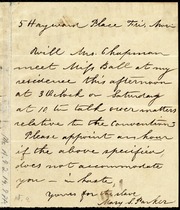 5 Hayward Place Fri. Morn
Will Mrs. Chapman
meet Miss Ball at my
residence this afternoon
at 3 O'clock or Saturday
at 10 to talk over matters
relative to the Convention
Please appoint an hour
if the above specified
does not accommodate
you – in haste
yours for the slave
Mary S. Parker